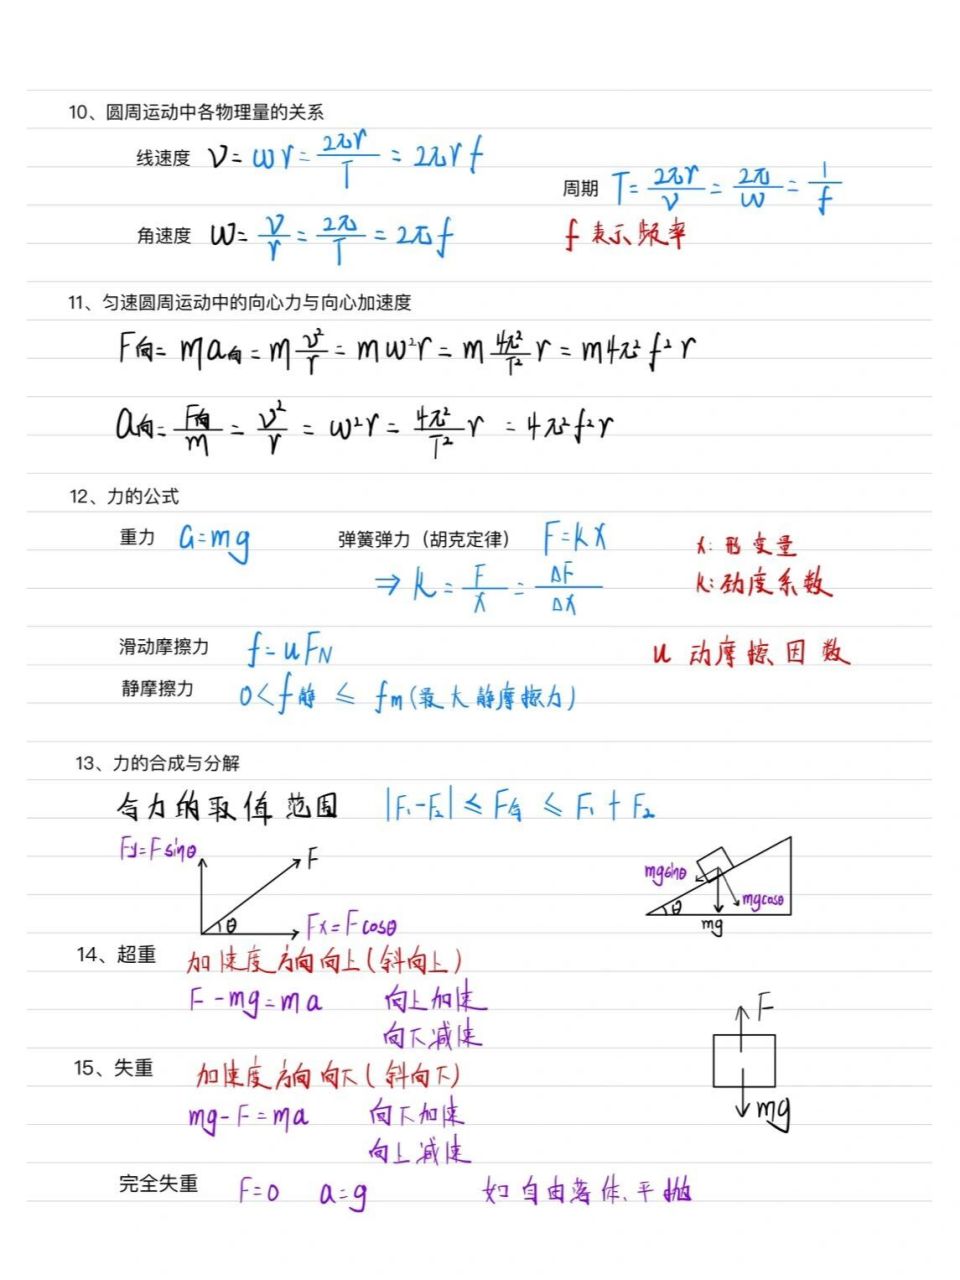 10、圆周运动中各物理量的关系
线速度 v = ωr = 2πr/T = 2πrf
周期 T = 2πr/v = 2π/ω = 1/f
角速度 ω = v/r = 2π/T = 2πf
f 表示频率
11、匀速圆周运动中的向心力与向心加速度
F向 = ma向 = m v²/r = mω²r = m 4π²/T² r = m4π²f²r
a向 = F向/m = v²/r = ω²r = 4π²/T² r = 4π²f²r
12、力的公式
重力 G=mg 弹簧弹力（胡克定律） F=kx x: 形变量
⇒ k = F/x = ΔF/Δx k: 劲度系数
滑动摩擦力 f=uFN u 动摩擦因数
静摩擦力 0<f静 ≤ fm(最大静摩擦力)
13、力的合成与分解
合力的取值范围 |F₁-F₂| ≤ F合 ≤ F₁+F₂
Fy=Fsinθ
F
θ
Fx=Fcosθ
mgsinθ
mgcosθ
θ
mg
14、超重 加速度方向向上(斜向上)
F-mg=ma 向上加速
向下减速
F
15、失重 加速度方向向下(斜向下)
mg-F=ma 向下加速
mg
向上减速
完全失重 F=0 a=g 如自由落体、平抛